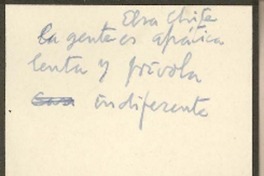 Elsa Chife
la gente es apática
lenta y frívola
indiferente